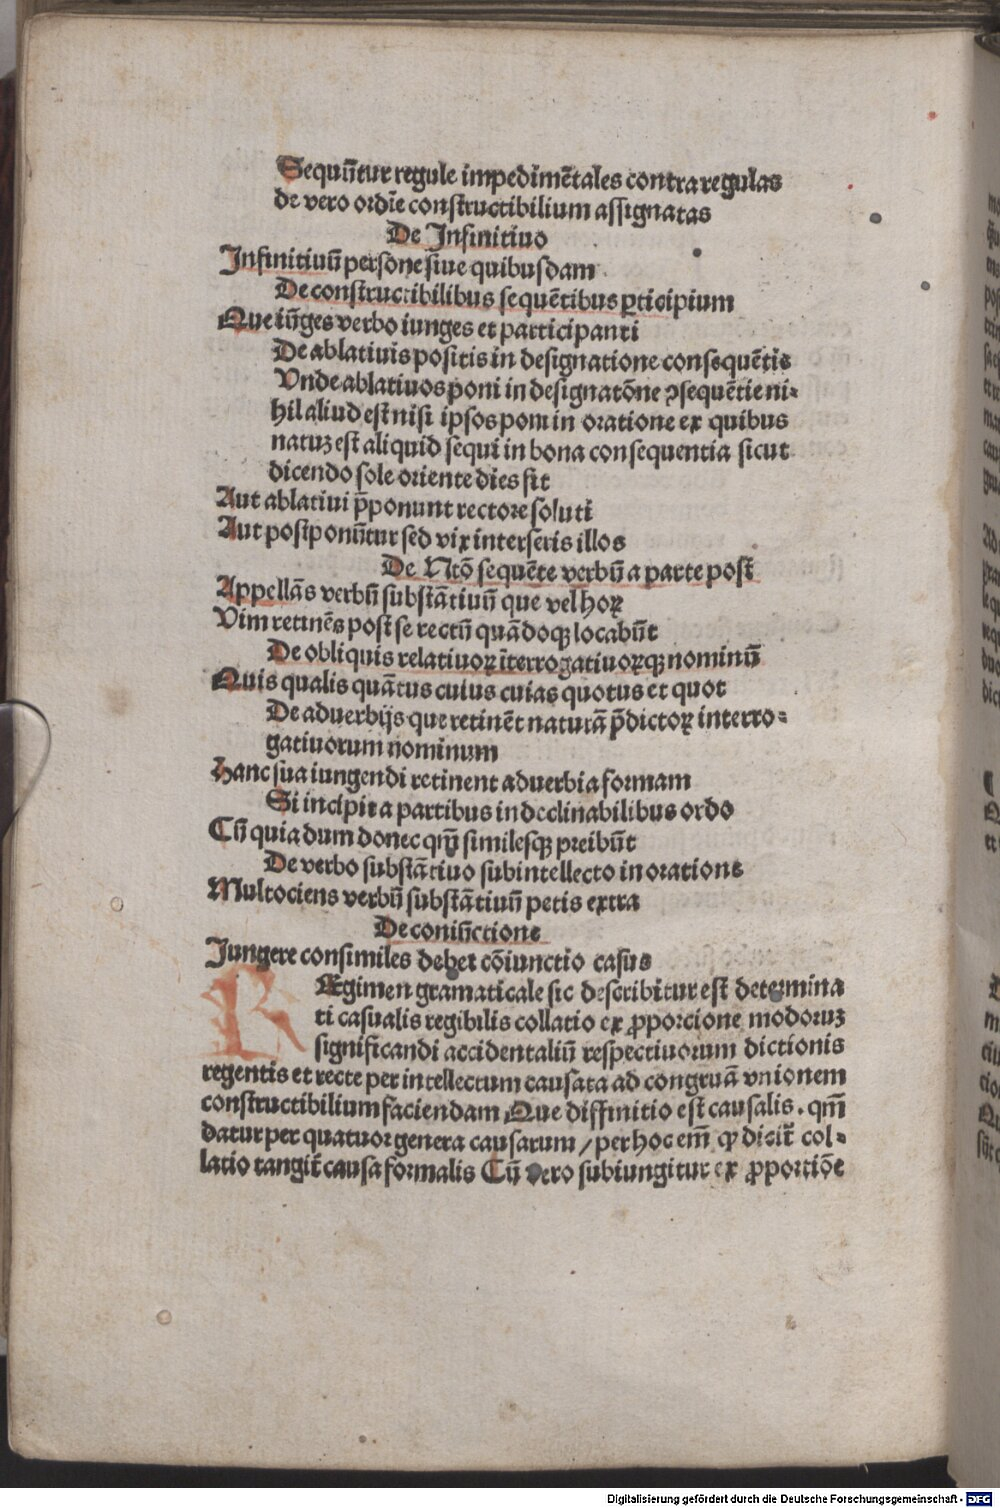 Sequūtur regule impedimētales contra regulas
de vero ordīe constructibilium assignatas
De Infinitiuo
Infinitiuū persone siue quibusdam
De constructibilibus sequētibus ꝑticipium
Que iūges verbo iunges et participanti
De ablatiuis positis in designatione consequētie
Unde ablatiuos poni in designatōne ↄsequētie ni⸗
hil aliud est nisi ipsos poni in oratione ex quibus
natuꝫ est aliquid sequi in bona consequentia sicut
dicendo sole oriente dies fit
Aut ablatiui p̄ponunt rectore soluti
Aut postponūtur sed vix interseris illos
De Ntō sequēte verbū a parte post
Appellās verbū substātiuū que vel hoꝝ
Uim retinēs post se rectū quādoqꝫ locabūt
De obliquis relatiuoꝝ īterrogatiuoꝝqꝫ nominū
Quis qualis quātus cuius cuias quotus et quot
De aduerbijs que retinēt naturā p̄dictoꝝ interro⸗
gatiuorum nominum
Hanc sua iungendi retinent aduerbia formam
Si incipit a partibus indeclinabilibus ordo
Cū quia dum donec qm̄ similesqꝫ preibūt
De verbo substātiuo subintellecto in oratione
Multociens verbū substātiuū petis extra
De coniūctione
Jungere consimiles debet cōiunctio casus
REgimen gramaticale sic describitur est determina
ti casualis regibilis collatio ex ꝓporcione modoruꝫ
significandi accidentaliū respectiuorum dictionis
regentis et recte per intellectum causata ad congruā vnionem
constructibilium faciendam Que diffinitio est causalis. qm̄
datur per quatuor genera causarum / per hoc em̄ ꝙ dicit̄ col⸗
latio tangit̄ causa formalis Cū vero subiungitur ex ꝓportiōe
Digitalisierung gefördert durch die Deutsche Forschungsgemeinschaft - DFG